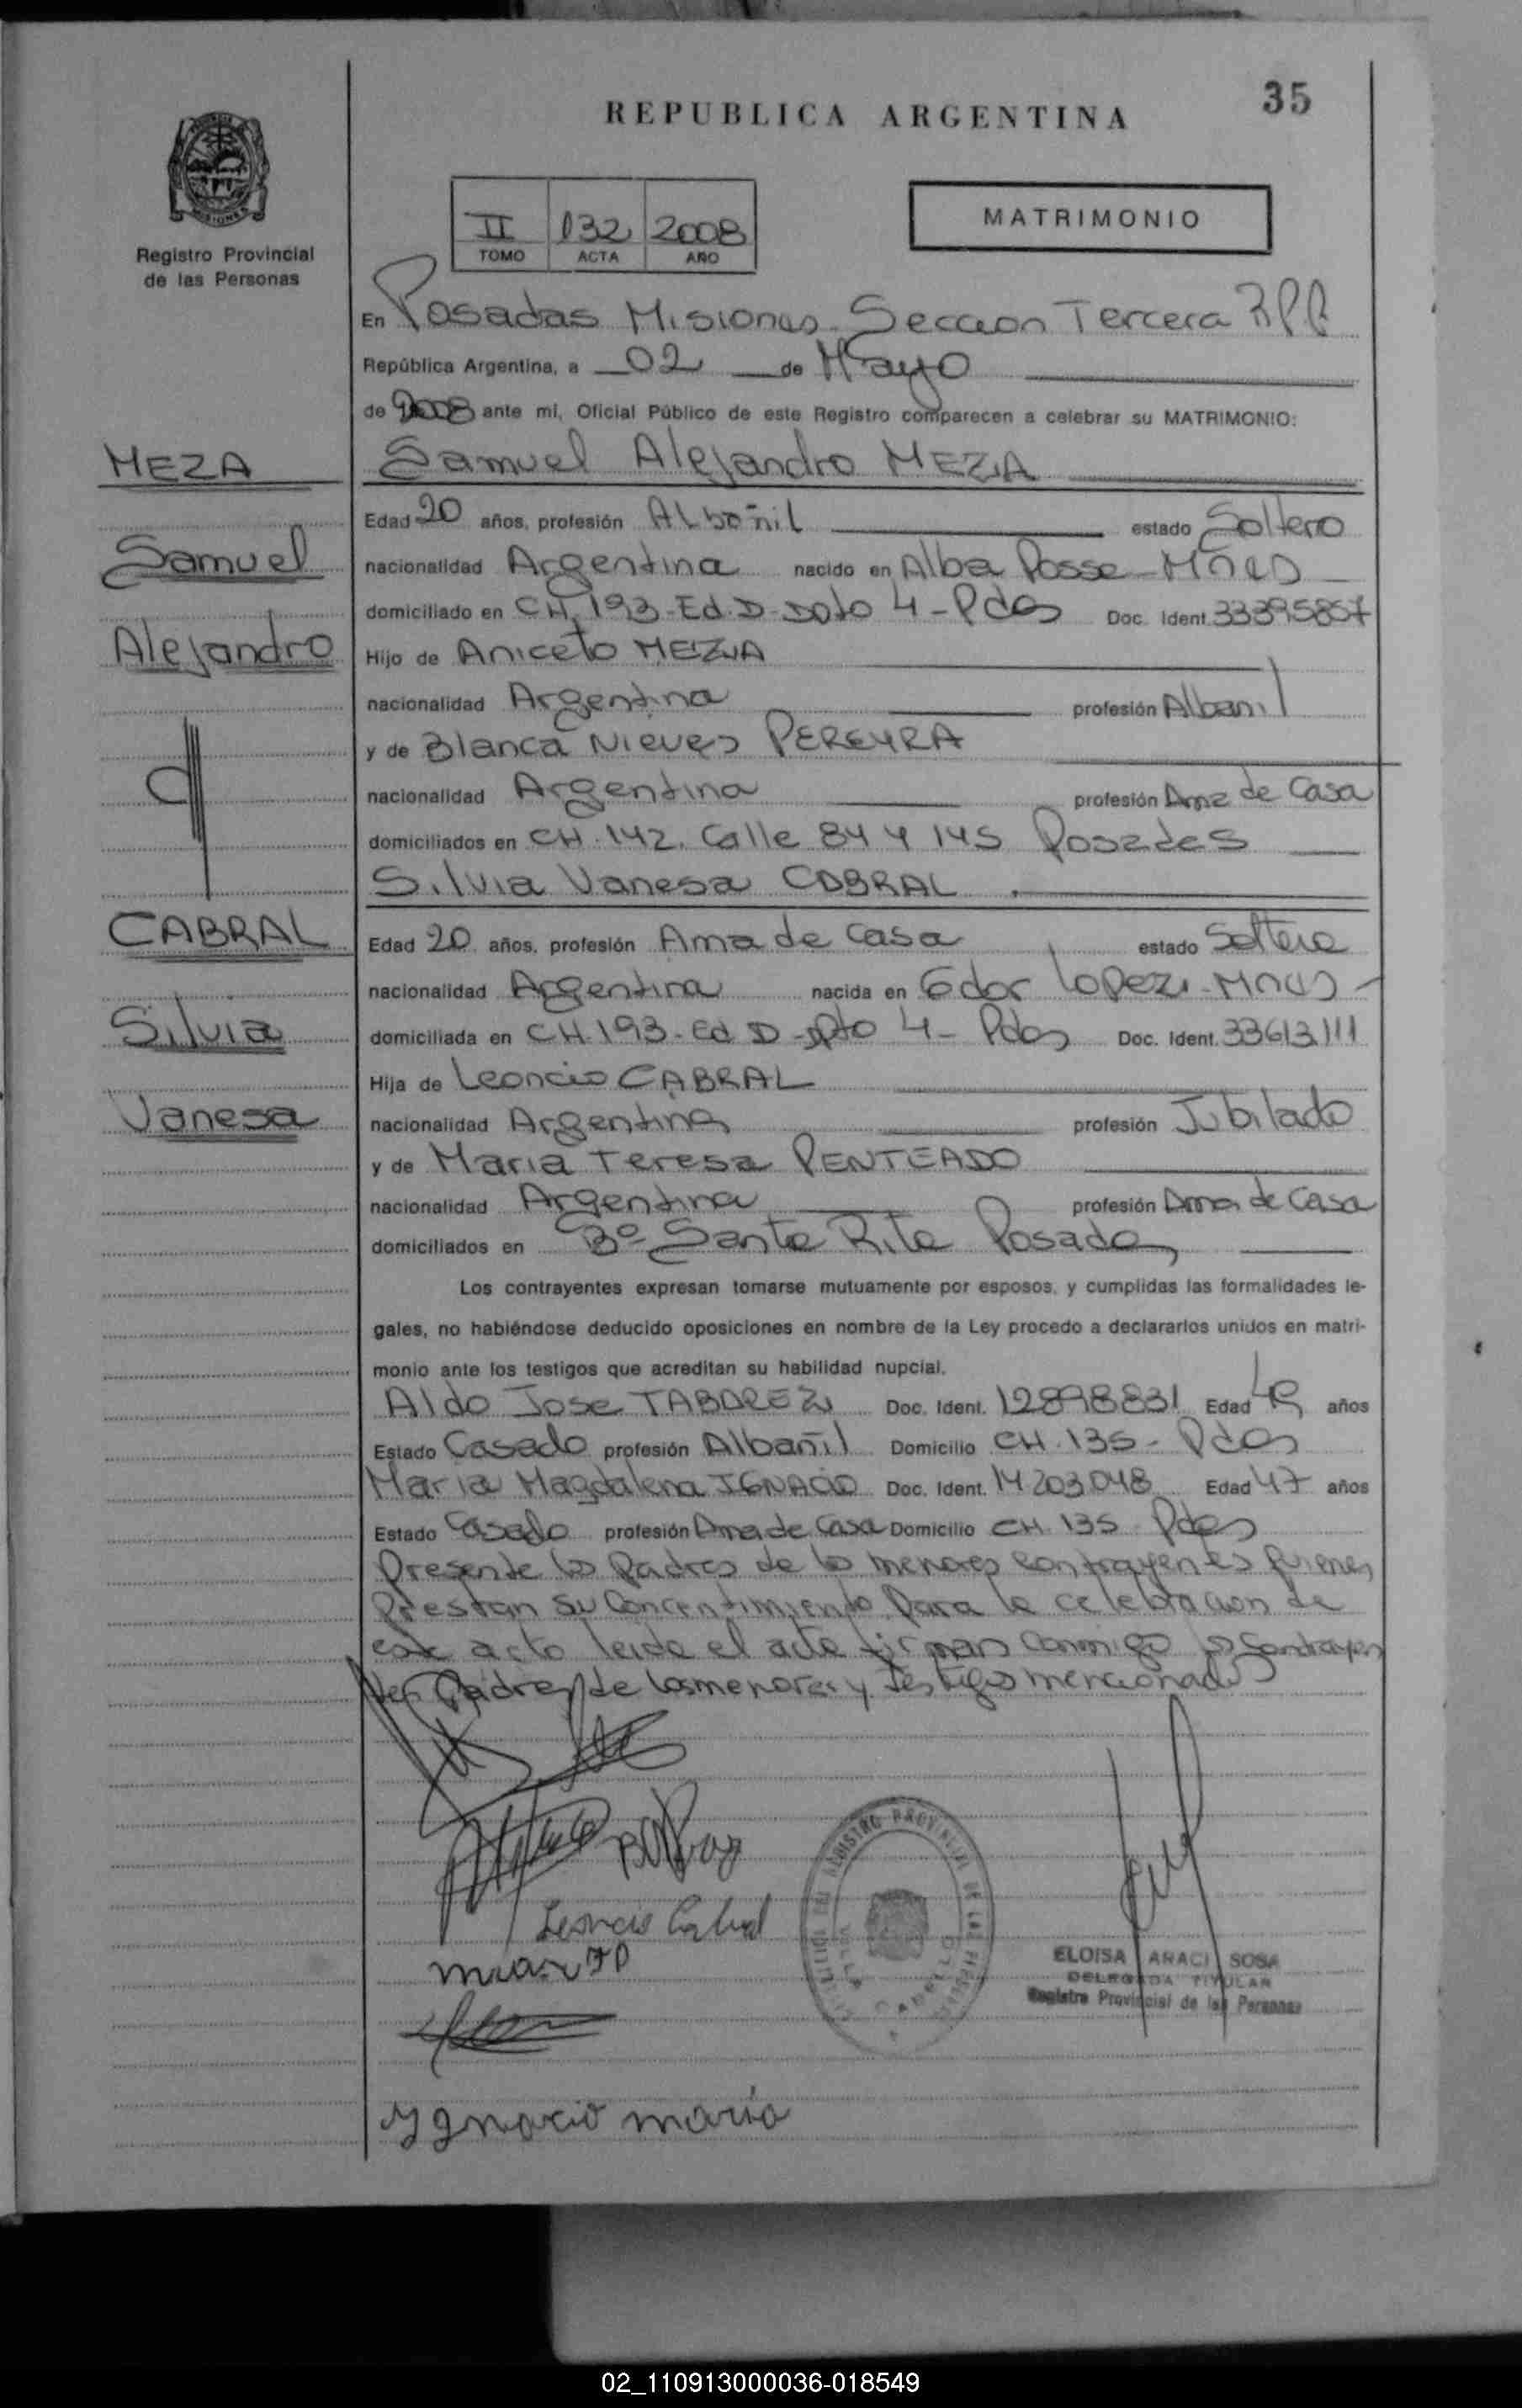 35
REPUBLICA ARGENTINA
MISIONES
Registro Provincial
de las Personas
II 132 2008
TOMO ACTA AÑO
MATRIMONIO
En Posadas Misiones Seccion Tercera RPP
República Argentina, a 02 de Mayo
de 2008 ante mi, Oficial Público de este Registro comparecen a celebrar su MATRIMONIO:
MEZA
Samuel Alejandro MEZA
Edad 20 años, profesión Albañil estado Soltero
Samuel
nacionalidad Argentina nacido en Alba Posse - Mnes
domiciliado en CH. 193 - Ed. D - Dpto 4 - Pdas Doc. Ident. 33395857
Alejandro
Hijo de Aniceto MEZA
nacionalidad Argentina profesión Albanil
y de Blanca Nieves PEREYRA
nacionalidad Argentina profesión Ama de Casa
domiciliados en CH. 142. Calle 84 y 145 Posadas
Silvia Vanesa CABRAL
CABRAL
Edad 20 años, profesión Ama de Casa estado Soltera
nacionalidad Argentina nacida en Gdor Lopez - Mnes
Silvia
domiciliada en CH. 193 - Ed D - Dpto 4 - Pdas Doc. Ident. 33613111
Hija de Leoncio CABRAL
Vanesa
nacionalidad Argentina profesión Jubilado
y de Maria Teresa PENTEADO
nacionalidad Argentina profesión Ama de Casa
domiciliados en Bº Santa Rita Posadas
Los contrayentes expresan tomarse mutuamente por esposos, y cumplidas las formalidades le-
gales, no habiéndose deducido oposiciones en nombre de la Ley procedo a declararlos unidos en matri-
monio ante los testigos que acreditan su habilidad nupcial.
Aldo Jose TABAREZ Doc. Ident. 12898831 Edad 49 años
Estado Casado profesión Albañil Domicilio CH. 135 - Pdas
Maria Magdalena IGNACIO Doc. Ident. 14203048 Edad 47 años
Estado Casado profesión Ama de Casa Domicilio CH 135 Pdas
Presente los Padres de los menores contrayentes quienes
Prestan su Concentimiento Para la celebracion de
este acto leida el acta firman conmigo los Contrayen
tes Padres de los menores y Testigos mencionados
Leoncio Cabral
REGISTRO PROVINCIAL DE LAS PERSONAS
VILLA CABELLO
ELOISA ARACI SOSA
DELEGADA TITULAR
Registro Provincial de las Personas
Ygnacio maria
02_110913000036-018549